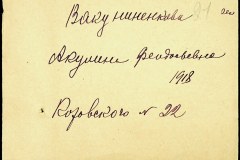 Вакуниненкова
Акулина Феодосьевна
1918
Розовского № 22